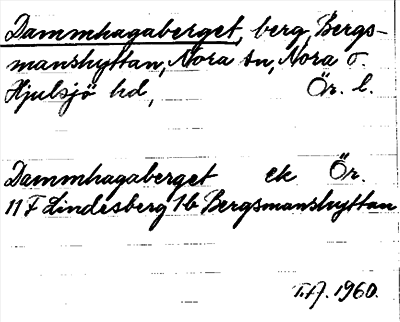 Dammhagaberget, berg, Bergs-
manshyttan, Nora sn, Nora o.
Hjulsjö hd, Ör. l.
Dammhagaberget ek Ör.
11 F Lindesberg 1b Bergsmanshyttan
1960.